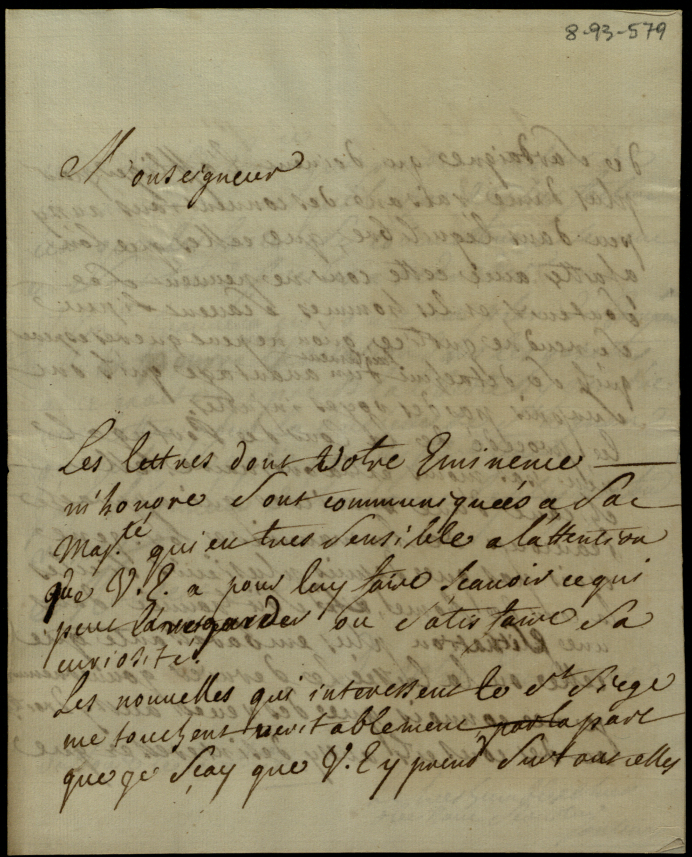 8-93-579
Monseigneur
Les lettres dont Votre Eminence
m'honore sont communiquées a Sa
Maj.té qui en tres sensible a lattention
que V. E. a pour luy faire scavoir ce qui
peut la regarder ou satisfaire sa
curiosité.
Les nouvelles qui interessent le St Siege
me touchent veritablement par la part
que je scay que V. E y prend surtout celles